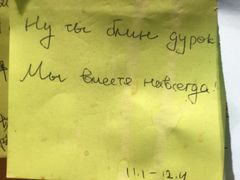 Ну ты блин дурок
Мы вместе навсегда!
11.1-12.4